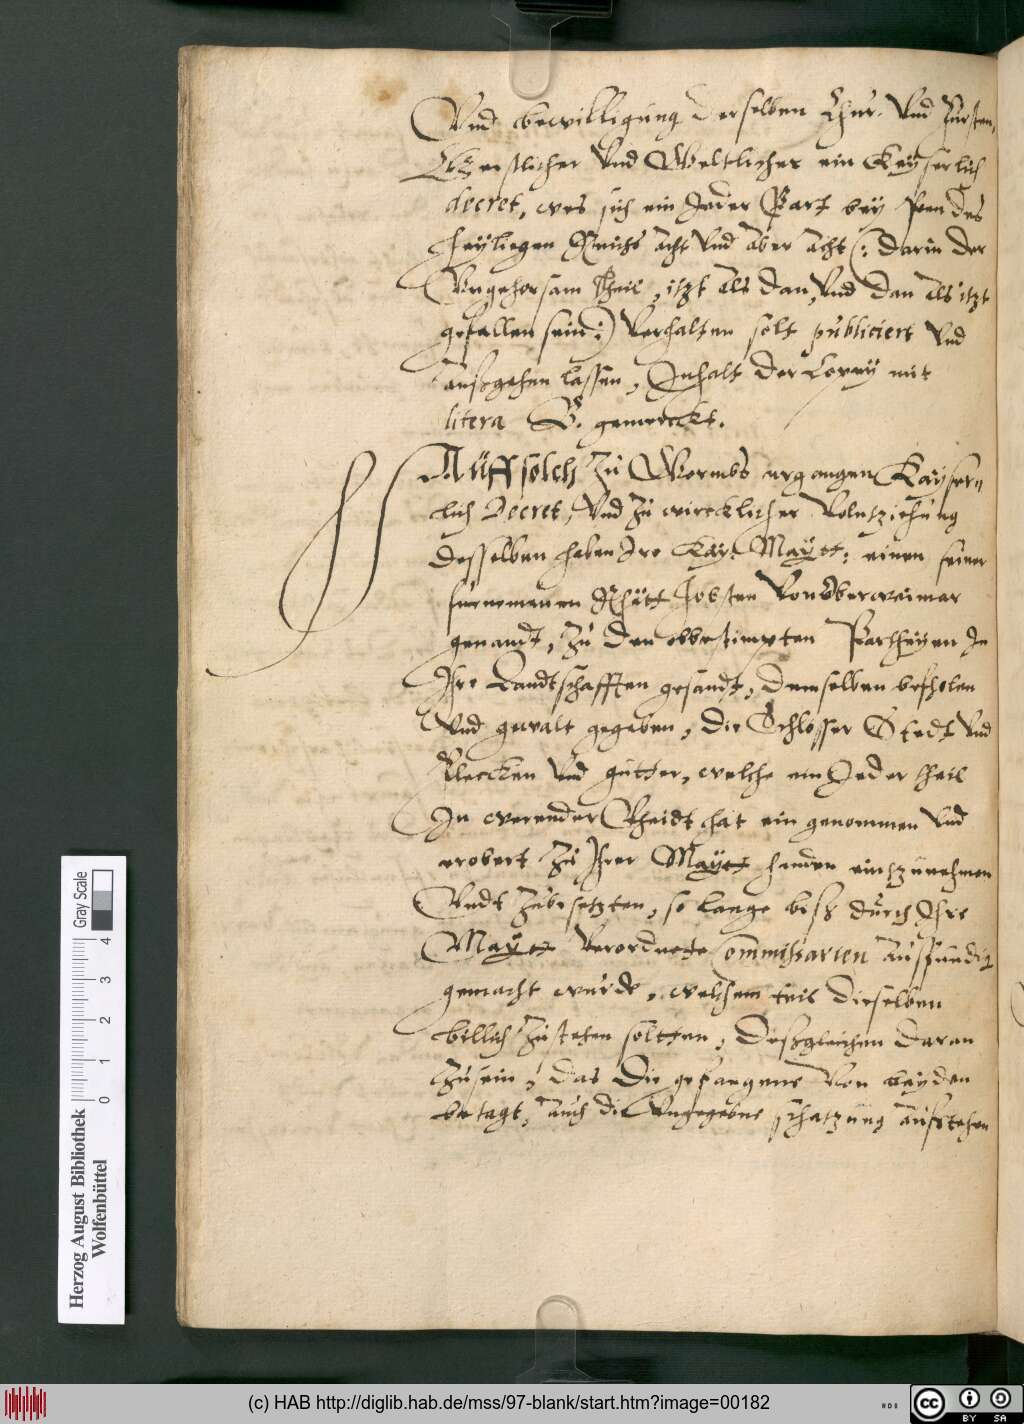 Vnd bewilligung derselben Chur. Vnd Fürsten,
Geystlicher Vnd Weltlicher ein Keyserlich
decret, wes sich ein Jeder Part bey Pen des
heyligen Reichs acht Vnd aber acht (: darin der
Vngehorsam theil, itzt als dan, Vnd dan als itzt
gefallen sein :) Verhalten solt publiciert Vnd
ausgehen lassen, Inhalt der Copey mit
litera B. gemerckt.
Auff solch zu Wormbs ergangen Kayser=
lich Decret, Vnd zu wircklicher Volntziehung
desselben haben Ire Kay: Mayet: einen seiner
furnemmen Rhätt Josten Von Oberweimar
genandt, zu den obbestimpten Partheyen In
Ihre Landtschafften gesandt, demselben befholen
Vnd gewalt gegeben, die Schlosser Stedt Vnd
Flecken Vnd gütter, welche ein Jeder theil
In werender Vheidt hat ein genommen Vnd
erobert zu Ihrer Mayet handen einzunehmen
Vndt zubesetzten, so lange biss durch Ihre
Mayet Verordnete Commissarien ausfündig
gemacht würde, welchem teil dieselben
billich zustehen soltten, dessgleichen daran
zusein, das die gefangene Von beyden
betagt, auch die Vngegebne schatzung aufstehen
Gray Scale
4
3
2
1
0
Herzog August Bibliothek
Wolfenbüttel
(c) HAB http://diglib.hab.de/mss/97-blank/start.htm?image=00182
cc BY SA